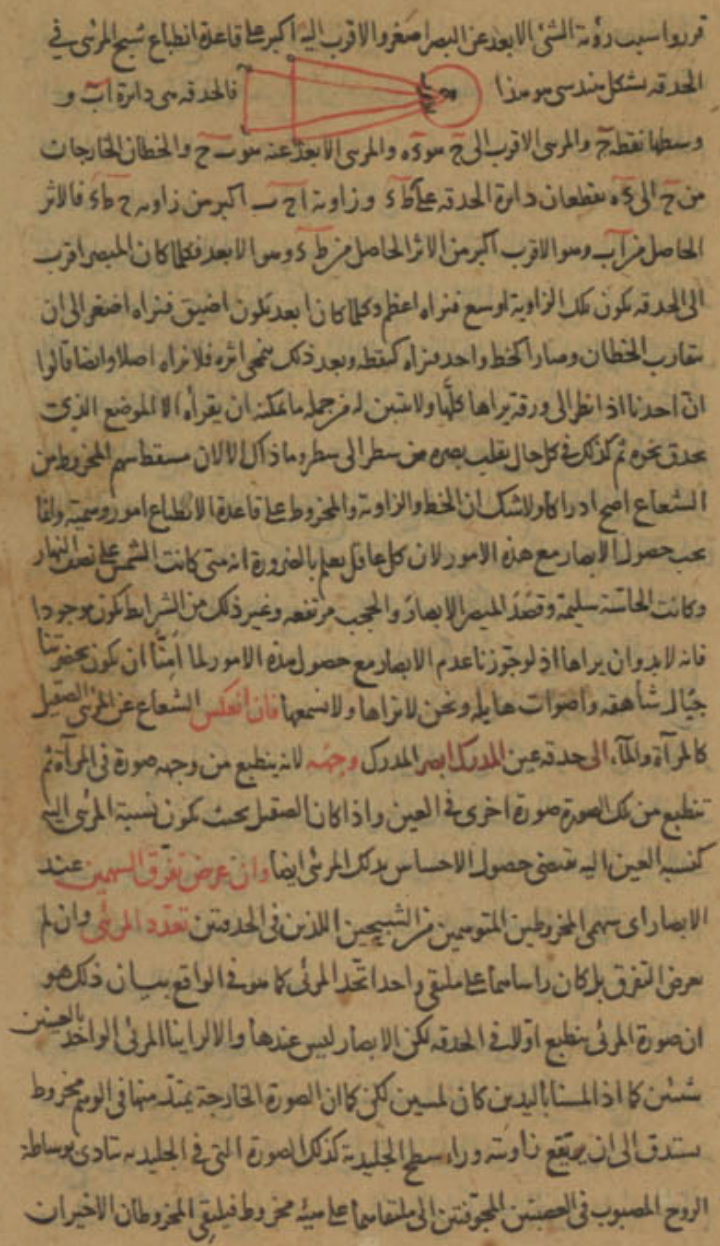 قرروا سبب رؤية الشئ الابعد عن البصر اصغر والاقرب اليه اكبر على قاعدة انطباع شبح المرئى في
الحدقه بشكل هندسى هو هذا فالحدقه هى دائرة اب و
وسطها نقطة ح والمرئى الاقرب الى ح هو ءه والمرئى الابعد عنه هو ح والخطان الخارجان
من ح الى ءه يقطعان دائرة الحدقه على ط ء وزاوية اح ب اكبر من زاويه ح ط ء فالاثر
الحاصل من اب وهو الاقرب اكبر من الاثر الحاصل من ط ء وهو الابعد فكلما كان المبصر اقرب
الى الحدقه تكون تلك الزاوية اوسع فنراه اعظم وكلما كان ابعد تكون اضيق فنراه اصغر الى ان
يتقارب الخطان وصارا كخط واحد فنراه كنقطه وبعد ذلك ينمحى اثره فلا نراه اصلا وايضا قالوا
ان احدنا اذا نظر الى ورقة يراها كلها ولا يتبين له من جمله ما يمكنه ان يقرأه الا الموضع الذى
يحدق نحوه ثم كذلك في كل حال يقلب بصره من سطر الى سطر وما ذاك الا لان مسقط سهم المخروط من
الشعاع اصح ادراكا ولا شك ان الخط والزاوية والمخروط على قاعدة الانطباع امور وهمية وانما
يجب حصول الابصار مع هذه الامور لان كل عاقل يعلم بالضرورة انه متى كانت الشمس على نصف النهار
وكانت الحاسة سليمة وقصد المبصر الابصار والحجب مرتفعه وغير ذلك من الشرايط تكون موجودا
فانه لا بد وان يراها اذ لو جوزنا عدم الابصار مع حصول هذه الامور لما امنا ان تكون بحضرتنا
جبال شاهقه واصوات هايله ونحن لا نراها ولا نسمعها فان انعكس الشعاع عن المرئى الصقيل
كالمرآة والماء الى حدقه عين المدرك ابصر المدرك وجهه لانه ينطبع من وجهه صورة فى المرآة ثم
تنطبع من تلك الصورة صورة اخرى في العين واذا كان الصقيل بحيث تكون نسبة المرئى اليه
كنسبه العين اليه يقتضى حصول الاحساس بذلك المرئى ايضا وان عرض تفرق السهمين عند
الابصار اى سهمى المخروطين المتوهمين من الشبيحين اللذين فى الحدقتين تعدد المرئى وان لم
يعرض التفرق بل كان راساهما على ملتقى واحد اتحد المرئى كما هو فى الواقع بيان ذلك هو
ان صورة المرئى ينطبع اولا فى الحدقه لكن الابصار ليس عندها والا لراينا المرئى الواحد بالعينين
شيئين كما اذا لمسنا باليدين كان لمسين لكن كما ان الصورة الخارجة يمتد منها فى الوهم مخروط
يستدق الى ان يوقع زاويته وراء سطح الجليدية كذلك الصورة التى فى الجليديه تتادى بوساطة
الروح المصبوب فى العصبتين المجوفتين الى ملتقاهما على هيئة مخروط فيلتقى المخروطان الاخيران